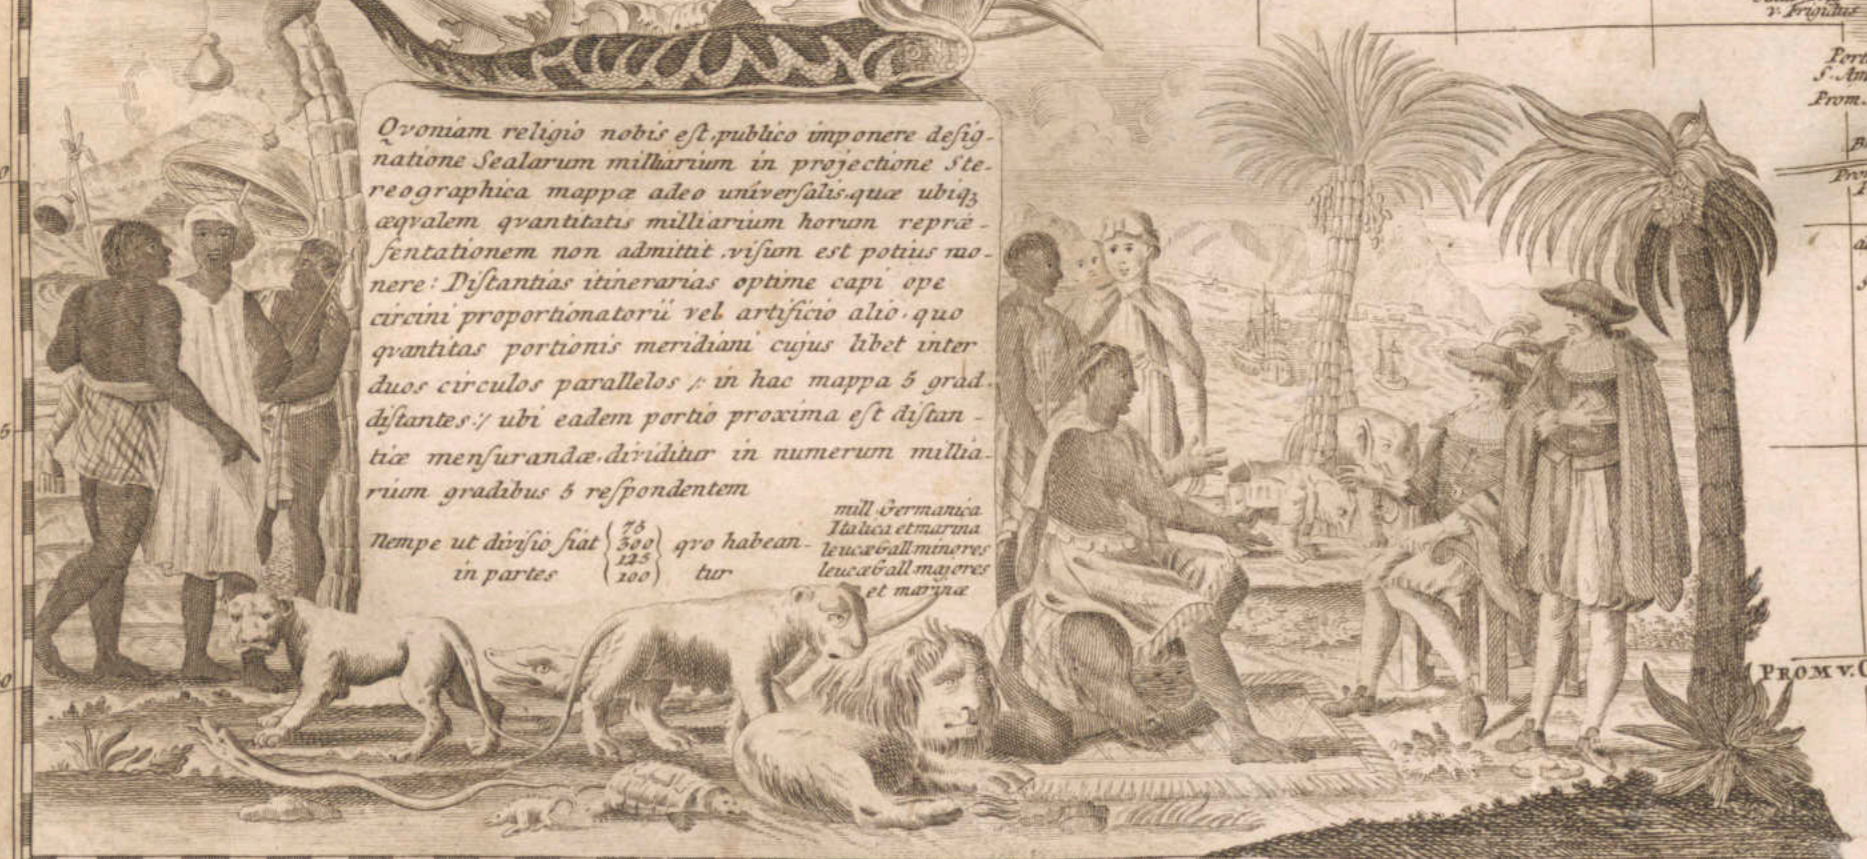 Qvoniam religio nobis eſt, publico imponere deſig-
natione Scalarum milliarium in projectione Ste-
reographica mappæ adeo univerſalis, quæ ubiqꝫ
æqvalem qvantitatis milliarium horum repræ-
ſentationem non admittit, viſum est potius mo-
nere: Diſtantias itinerarias optime capi ope
circini proportionatorii vel artificio alio, quo
qvantitas portionis meridiani cujus libet inter
duos circulos parallelos /: in hac mappa 5 grad.
diſtantes :/ ubi eadem portio proxima eſt diſtan-
tiæ menſurandæ, dividitur in numerum millia-
rium gradibus 5 reſpondentem
Nempe ut diviſio fiat in partes
75
300
125
100
qvo habean-
tur
mill Germanica
Italica et marina
leucæ Gall minores
leucæ Gall majores
et marinæ
v. Frigidus
Prom.
PROM V.